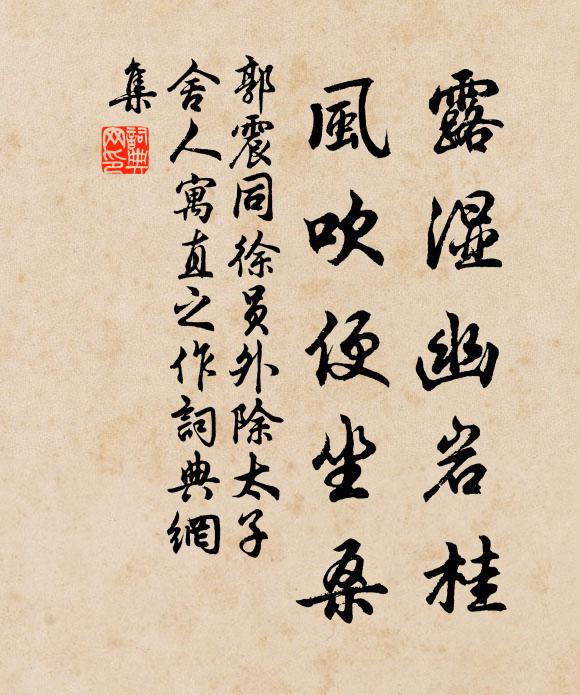 露湿幽岩桂
風吹便坐桑
郭震同徐員外除太子
舍人寓直之作詞典網
集
詞典
网印